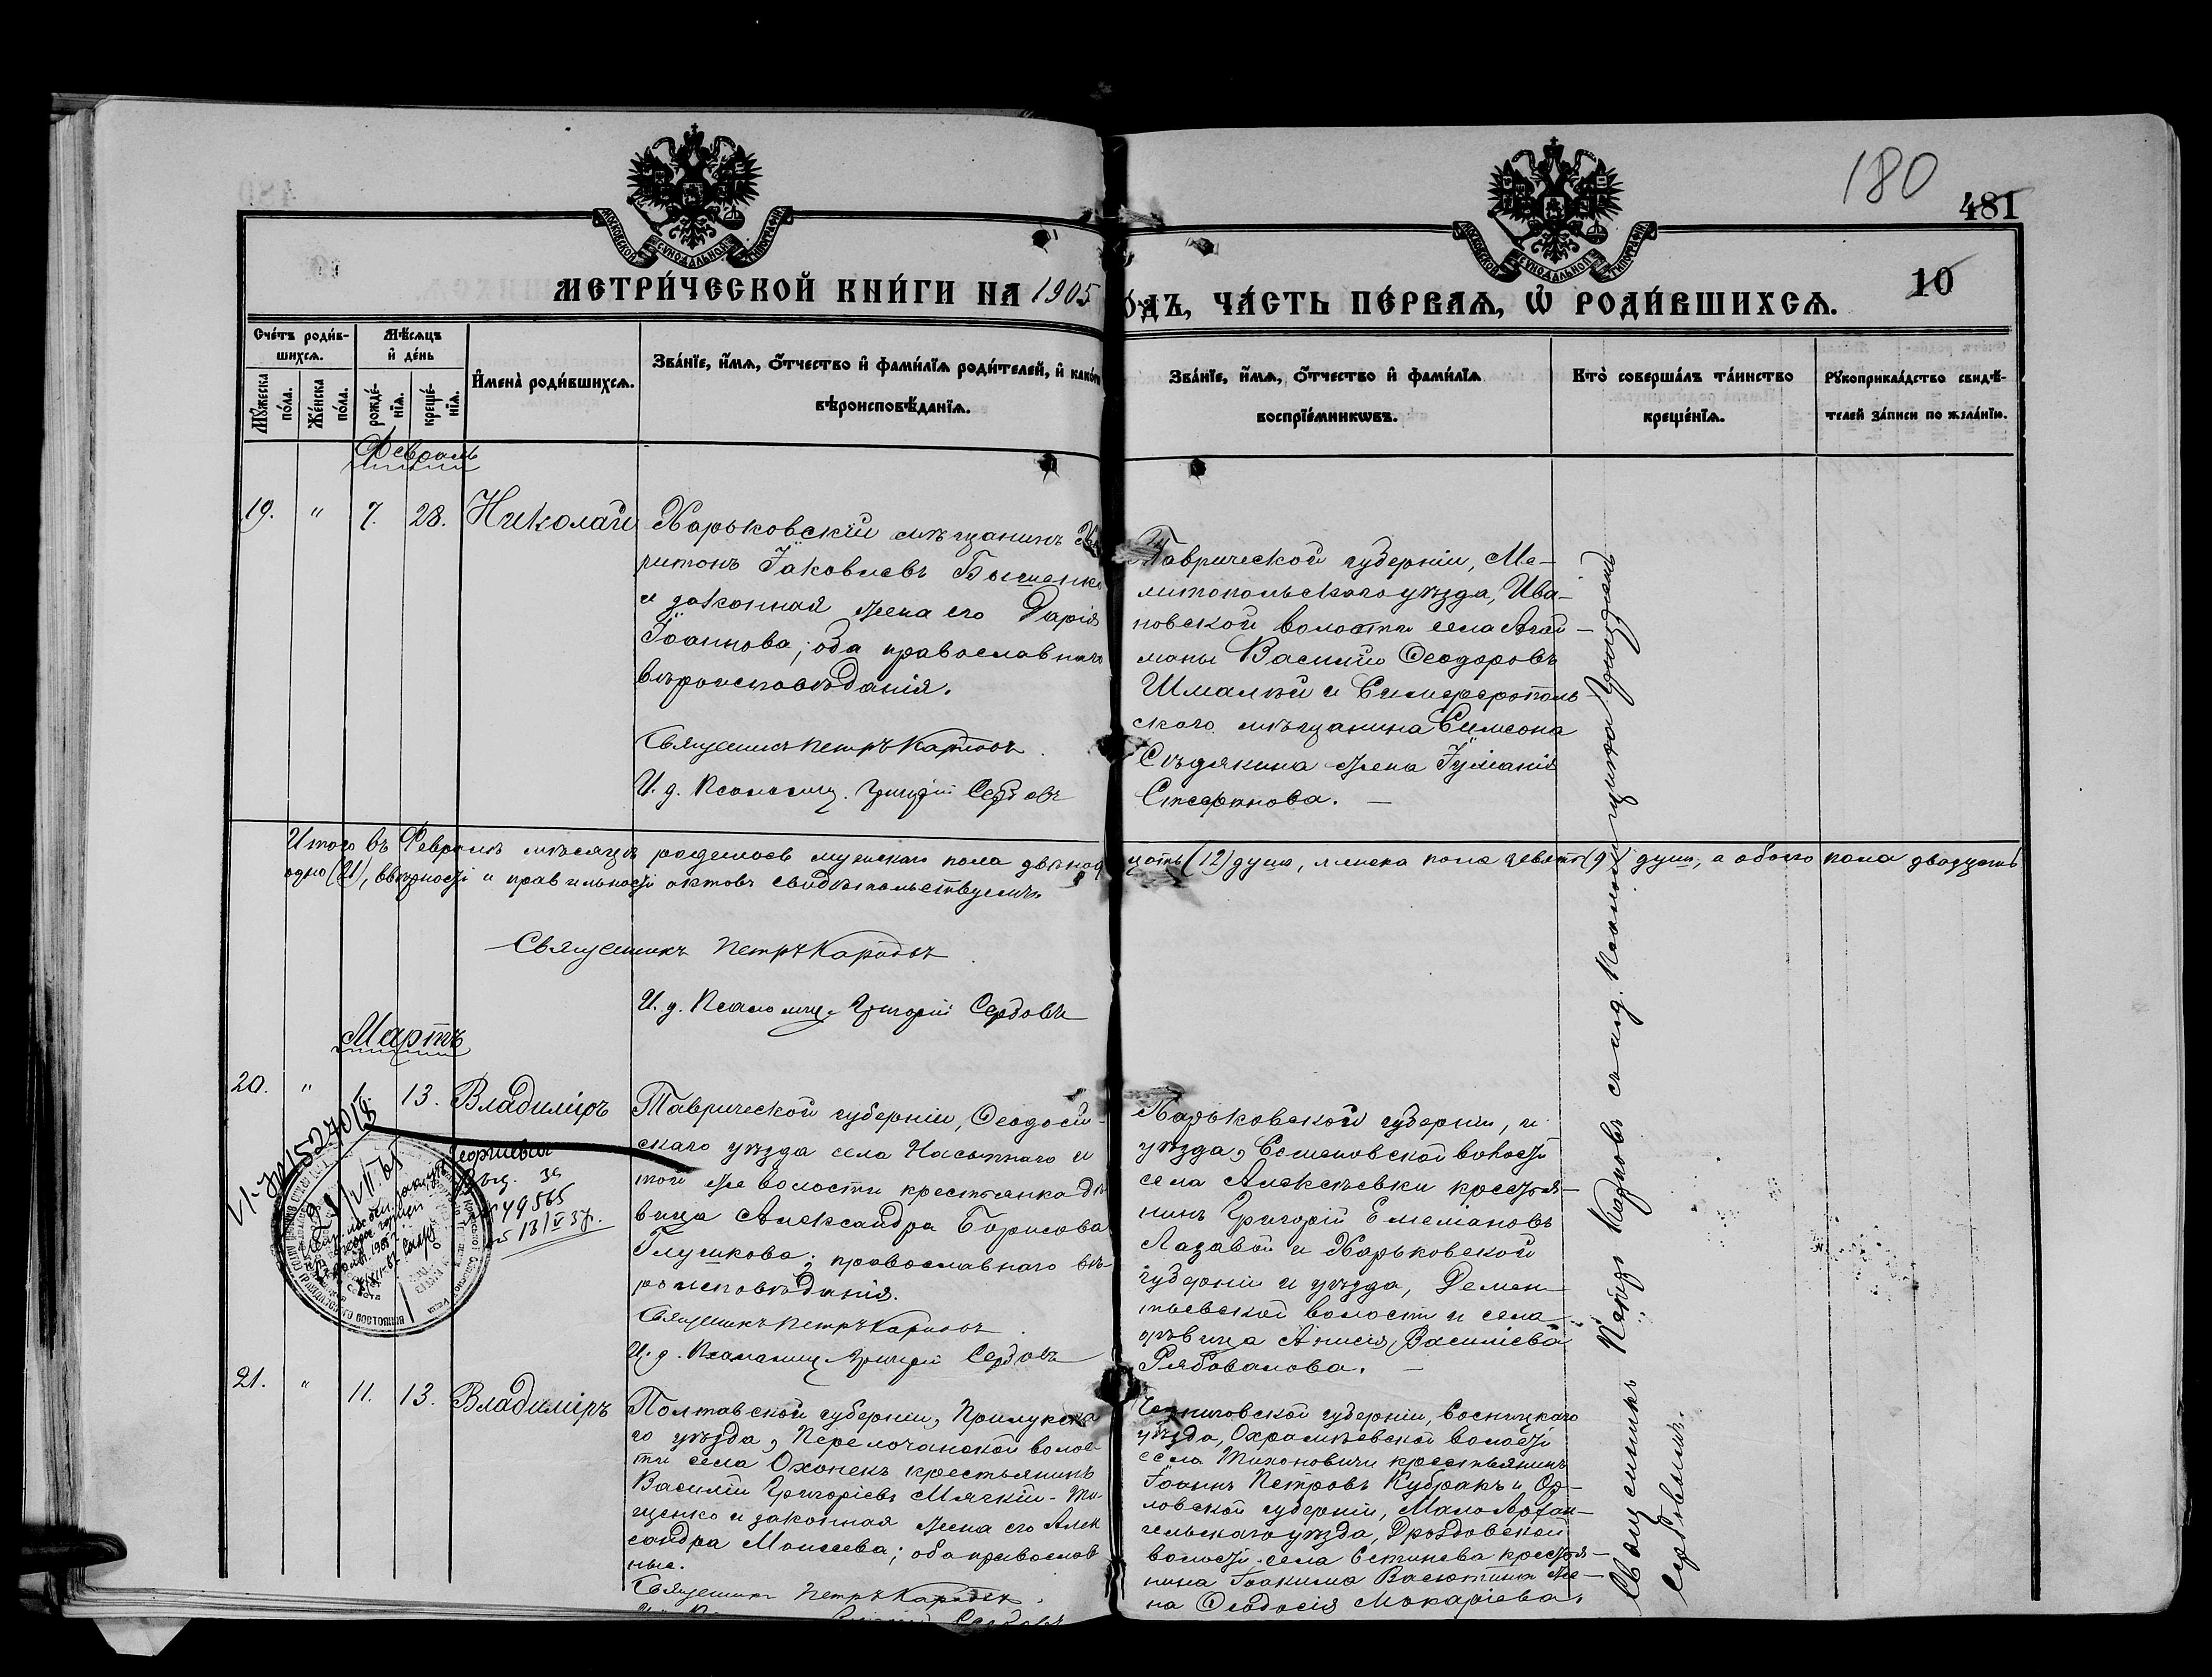 180
481
10
МОСКОВСКОЙ СѴНОДАЛЬНОЙ ТИПОГРАФІИ
МОСКОВСКОЙ СѴНОДАЛЬНОЙ ТИПОГРАФІИ
МЕТРИ́ЧЕСКОЙ КНИ́ГИ НА 1905
О́ДЪ, ЧА́СТЬ ПЕ́РВАѦ, Ѡ҆ РОДИ́ВШИХСѦ.
Сче́тъ роди́в-
шихсѧ.
Мꙋ́жеска
по́ла.
Же́нска
по́ла.
Мѣ́сѧцъ
и҆ де́нь
рожде́-
нїѧ.
креще́-
нїѧ.
И҆мена̀ роди́вшихсѧ.
Зва́нїе, и҆́мѧ, ѻ҆́тчество и҆ фами́лїѧ роди́телей, и҆ како́гѡ
вѣроисповѣ́данїѧ.
Зва́нїе, и҆́мѧ, ѻ҆́тчество и҆ фами́лїѧ
воспрїе́мникѡвъ.
Кто̀ соверша́лъ та́инство
креще́нїѧ.
Рꙋкоприкла́дство свидѣ́-
телей за́писи по жела́нїю.
Февраль
19. " 7. 28. Николай
Харьковскій мѣщанинъ Ха
ритонъ Іаковлевъ Бышенко
и законная жена его Дарія
Іоаннова; оба православнаго
вѣроисповѣданія.
Священникъ Петръ Карповъ
И. д. Псаломщ. Григорій Сербовъ
Таврической губерніи, Ме-
литопольскаго уѣзда, Ива-
новской волости села Агай-
маны Василій Ѳеодоровъ
Шмалѣй и Симферополь-
скаго мѣщанина Симеона
Сѣдякина жена Іуліанія
Стефанова. —
Итого въ Февралѣ мѣсяцѣ родилось мужскаго пола двѣнад
цать (12) душъ, женска пола девять (9) душъ, а обоего пола двадцать
одно (21), въ вѣрности и правильности актовъ свидѣтельствуемъ.
Священникъ Петръ Карповъ
И. д. Псаломщ. Григорій Сербовъ
Мартъ
20. " 1. 13. Владиміръ
Георгиевич
49565
13/V 37г.
Таврической губерніи, Ѳеодосій-
скаго уѣзда села Насыпнаго и
той же волости крестьянка дѣ-
вица Александра Борисова
Глушкова; православнаго вѣ-
роисповѣданія.
Священникъ Петръ Карповъ
И. д. Псаломщ. Григорій Сербовъ
Харьковской губерніи, и
уѣзда, Семеновской волости
села Алексѣевки крестья-
нинъ Григорій Емеліановъ
Лазавой и Харьковской
губерніи и уѣзда, Демен-
тьевской волости и села
дѣвица Анисія Василіева
Рябовалова. —
21. " 11. 13. Владиміръ
Полтавской губерніи, Прилукска
го уѣзда, Переволочанской волос-
ти села Охонекъ крестьянинъ
Василій Григоріевъ Мягкій-Ти-
щенко и законная жена его Алек
сандра Моисеева; оба православ
ные.
Священникъ Петръ Карповъ
Черниговской губерніи, Сосницкаго
уѣзда, Охрамѣевской волости
села Тихоновичи крестьянинъ
Іоаннъ Петровъ Кубракъ и Ор-
ловской губерніи, Мало Архан-
гельскаго уѣзда, Дроздовской
волости села Естинева крестья-
нина Іоакима Васютина же-
на Ѳеодосія Макаріева.
Священникъ Петръ Карповъ съ и. д. Псаломщика Григоріемъ
Сербовымъ.